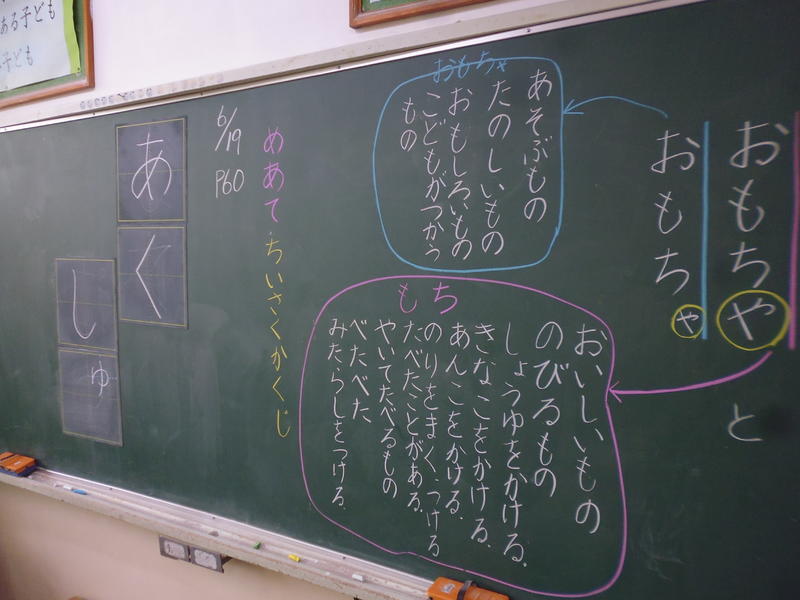 おもちや
と
おもちゃ
おもちゃ
あそぶもの
たのしいもの
おもしろいもの
こどもがつかう
もの
もち
おいしいもの
のびるもの
しょうゆをかける。
きなこをかける。
あんこをかける。
のりをまく、つける
たべたことがある。
やいてたべるもの
べたべた
みたらしをつける。
めあて・ちいさくかくじ
6/19
P60
あく
しゅ
ある子ども
子ども